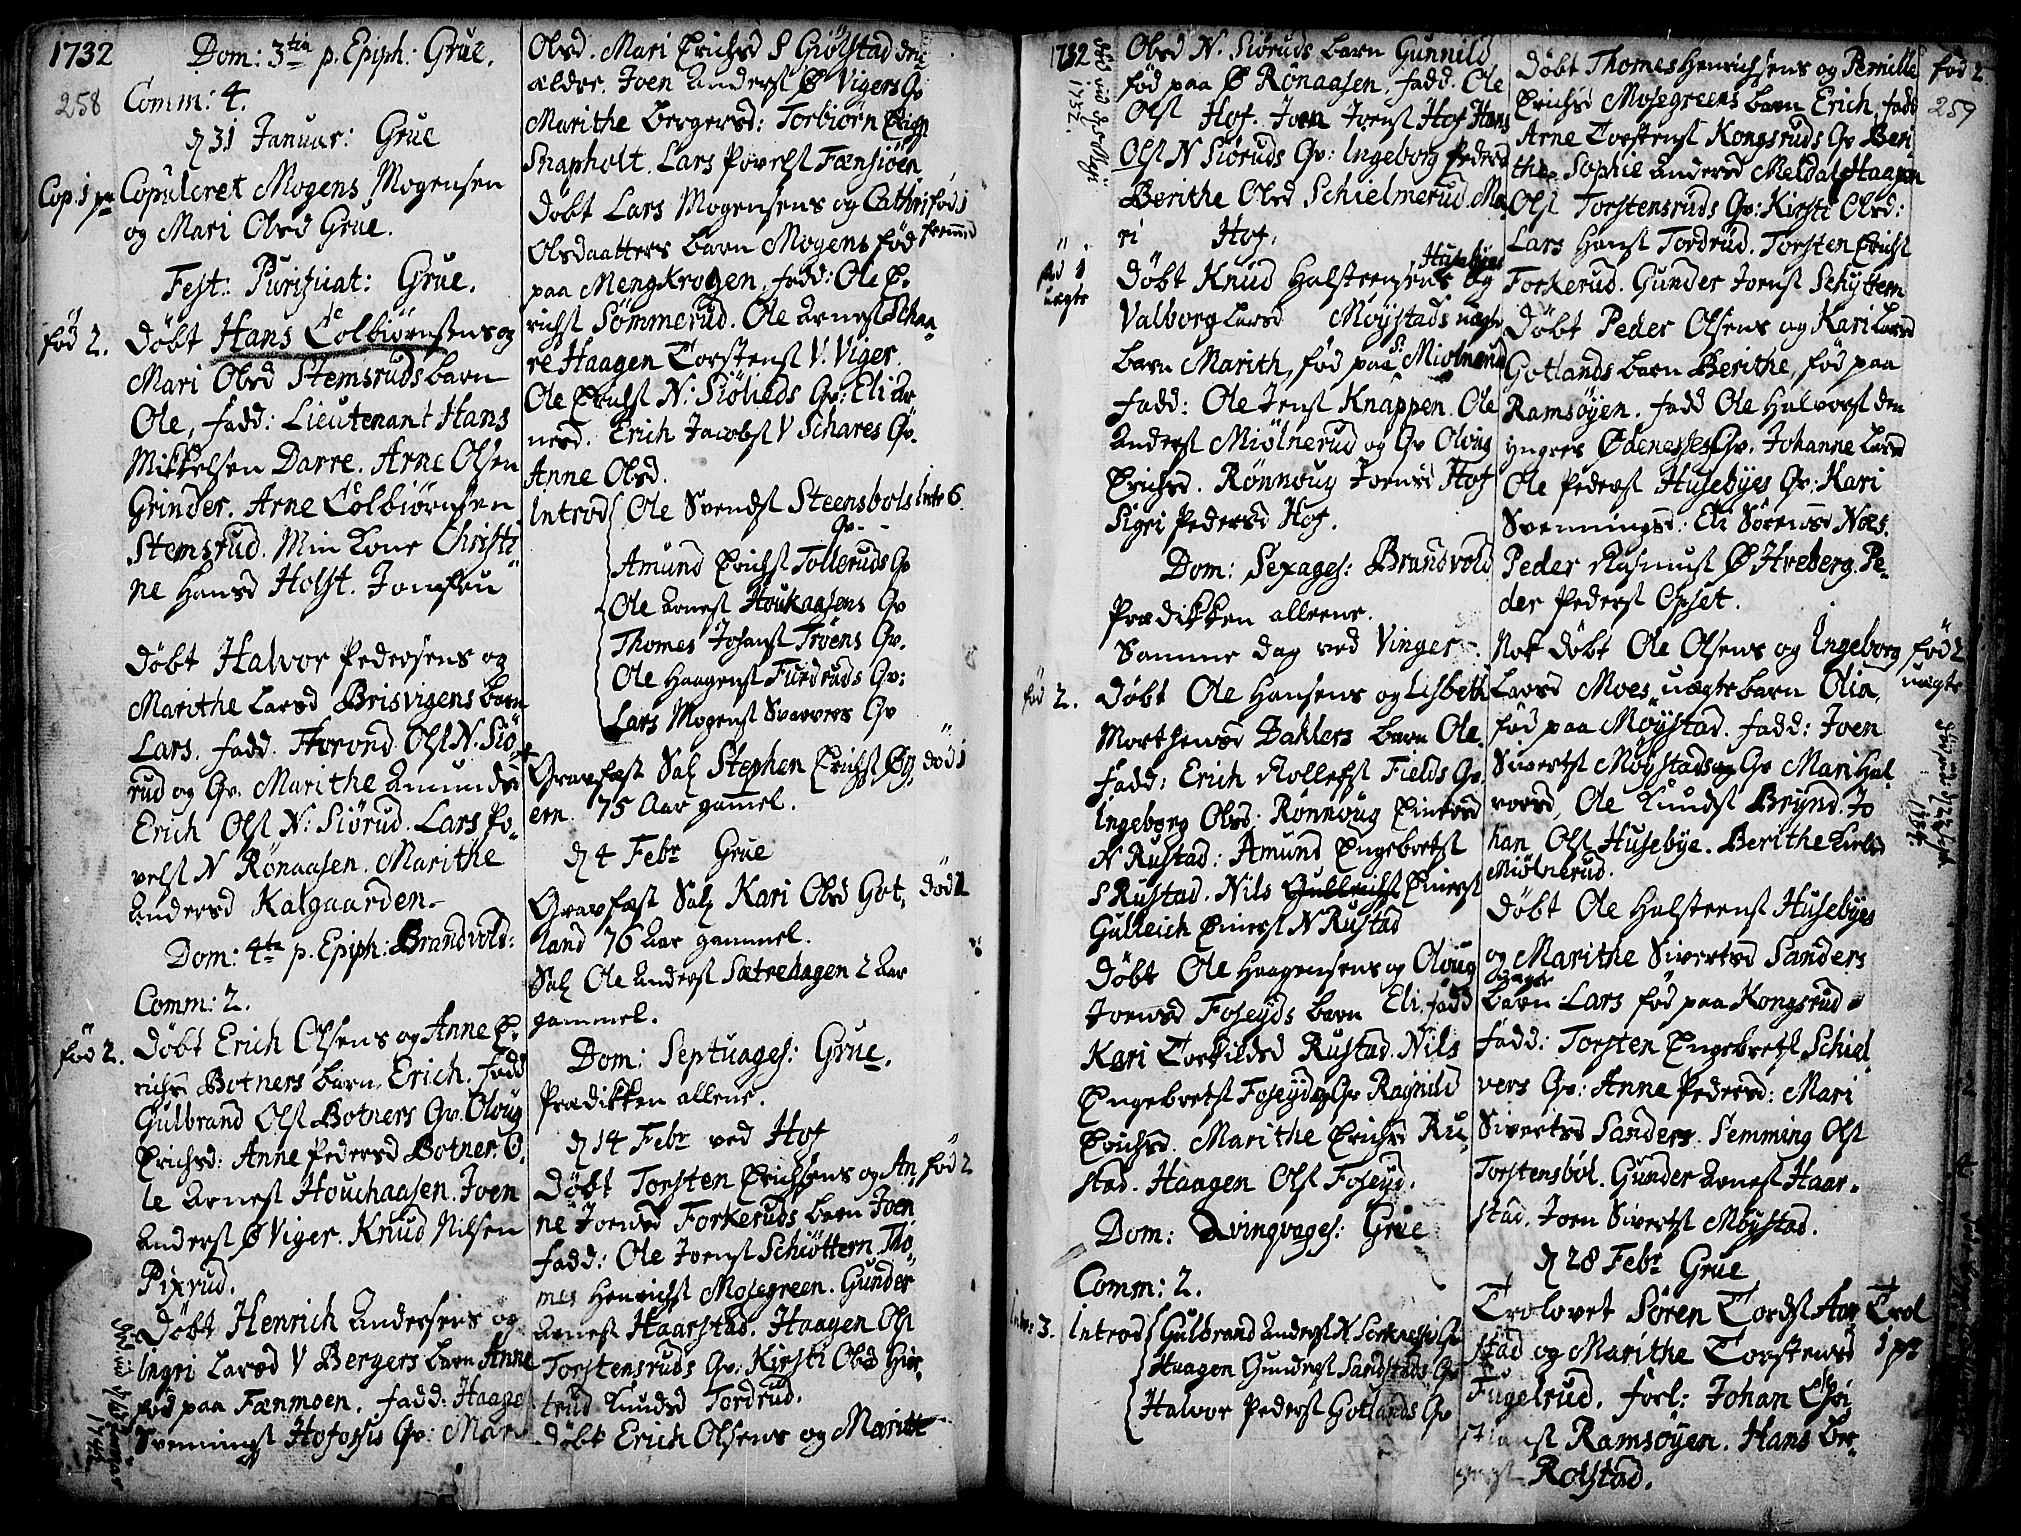 1732
258
Dom: 3tia p. Epiph: Grue.
Comm: 4.
d 31 Januar: Grue
Cop. 1 pr
Copuleret Mogens Mogensen
og Mari Olsd Grue.
Fest: Purificat: Grue.
fød 2.
Døbt Hans Colbiørnsens og
Mari Olsd Stemsruds barn
Ole, fadd: Lieutenant Hans
Mikkelsen Darre. Arne Olsen
Grinder. Arne Colbiørnsen
Stemsrud. Min Kone Christi
ne Hansd Holst. Jomfru
Døbt Halvor Pedersens og
Marithe Larsd Brisvigens barn
Lars. fadd. Trond Olss N. Siø
rud og Qv. Marithe Amundsd
Erich Olss N: Siørud. Lars Po-
velss N Rønaasen. Marithe
Andersd Kalgaarden.
Dom: 4ta p. Epiph: Brandvold:
Comm: 2.
fød 2.
Døbt Erich Olsens og Anne E-
richsd Botners barn Erich. fadd
Gulbrand Olss Botners Qv. Oloug
Erichsd: Anne Pedersd Botner. O-
le Arness Houchaasen. Joen
Anderss Ø Viger. Knud Nilsen
Pixrud.
Døbt Henrich Andersens og
Ingri Larsd V Bergers barn Anne
fød paa Fænmoen. fadd: Haagen
Svennings Hofoss Qv: Mari
Olsd. Mari Erichsd S Giølstad den
ældre. Joen Anderss Ø Vigers Qv
Marithe Bergersd: Torbiørn Erichs
Snapholt. Lars Povelss Fænsiøen
Døbt Lars Mogensens og Cathri
fød 1
Olsdaatters barn Mogens fød
paa Mengkrogen, fadd: Ole E-
richss Sømmerud. Ole Arness Schaa-
re Haagen Torstenss V. Viger
Ole Erichss N: Siøheds Qv: Eli Ar
nesd. Erich Jacobss V Schares Qv.
Anne Olsd.
Introd Ole Svendss Steensbøls
Intr 6
Qv.
Amund Erichss Tolleruds Qv
Ole Arness Houkaasens Qv
Thomes Johanss Troens Qv.
Ole Haagenss Furdruds Qv:
Lars Mogenss Svarvers Qv
Gravfæst Sal Stephen Erichss Øy,
død 1
ern 75 Aar gammel.
d 4 Febr Grue
Gravfæst Sal Kari Olsd Got,
død 2
land 76 Aar gammel.
Sal Ole Anderss Sætrehagen 2 Aar
gammel.
Dom: Septuages: Grue.
Prædikken allene.
d 14 Febr ved Hof
Døbt Torsten Erichsens og An,
fød 2
ne Joensd Forkeruds barn Joen
fadd: Ole Joenss Schiøttern. Tho-
mes Henrichss Mosegreen. Gunder
Arness Haarstad. Haagen Olss
Torstensruds Qv: Kirsti Olsd Gier-
trud Knudsd Tordrud.
Døbt Erich Olsens og Marithe
1732
Olsd N. Siøruds barn Gunnild
fød paa Ø Rønaasen. fadd. Ole
Olss Hof. Joen Jonss Hof Hans
Olss N Siøruds Qv: Ingeborg Pedersd
Berithe Olsd Schielmerud. Ma-
ri Hof.
fød 1
uægte
Døbt Knud Halsteensens Husebyes og
Valborg Larsd Møystads uægte
barn Marith, fød paa Miølnerud
fadd: Ole Jenss Knappen. Ole
Anderss Miølnerud og Qv Oloug
Erichsd. Rønnoug Joensd Hof
Sigri Pedersd Hof.
Dom: Sexages: Brandvold
Prædikken alleene.
Samme dag ved Vinger
fød 2.
Døbt Ole Hansens og Lisbeth
Morthensd Dahlers barn Ole.
fadd: Erich Rollefss Fields Qv.
Ingeborg Olsd. Rønnoug Einersd
N Rustad: Amund Engebretss
S Rustad. Nils Einerss
Gulleich Einerss N Rustad
Døbt Ole Haagensens og Oloug
Joensd Foseyds barn Eli. fadd
Kari Torkildsd Rustad. Nils
Engebretss Foseyds Qv Ragnild
Erichsd. Marithe Erichsd Ru,
stad. Haagen Olss Foseyd.
Dom: Qvinqvages: Grue
Comm: 2.
Intr: 3.
Introd Gulbrand Anderss N Sorknessis Qv
Haagen Gunderss Sandstads Qv
Halvor Pederss Gotlands Qv
Døbt Thomes Henrichsens og Pernille
fød 2
259
Erichsd Mosegreens barn Erich, fadd
Arne Torstenss Kongsruds Qv Beri-
the Sophie Andersd Meldal. Haagen
Olss Torstensruds Qv: Kirsti Olsd:
Lars Hanss Tordrud. Torsten Erichss
Forkerud. Gunder Jonss Schybern
Døbt Peder Olsens og Kari Larsd
Gotlands barn Berithe, fød paa
Ramsøyen. fadd Ole Halvorss den
yngres Ødenesses Qv. Johanne Larsd
Ole Pederss Husebyes Qv: Kari
Svenningsd: Eli Sørensd Noes.
Peder Rasmuss Ø Hveberg. Pe-
der Pederss Opset.
Nok Døbt Ole Olsens og Ingeborg
fød 2
uægte
Larsd Moes uægte barn Olia,
fød paa Møystad. fadd: Joen
Sivertss Møystads Qv Mari Hal
vorsd, Ole Knudss Brynd. Jo
han Olss Husebye. Berithe Larsd
Miølnerud.
Døbt Ole Halsteenss Husebyes
og Marithe Sivertsd Sanders
uægte
barn Lars fød paa Kongsrud
fadd: Torsten Engebretss Schiel-
vers Qv: Anne Pedersd: Mari
Sivertsd Sanders. Semming Olss
Torstensbøl. Gunder Arness Haar-
stad. Joen Sivertss Møystad.
d 28 Febr Grue
Trolovet Søren Tordss Aar
Trol
1 pr
stad og Marithe Torstensd
Fugelrud. forl: Johan Chri
stianss Ramsøyen. Hans
Rolstad.